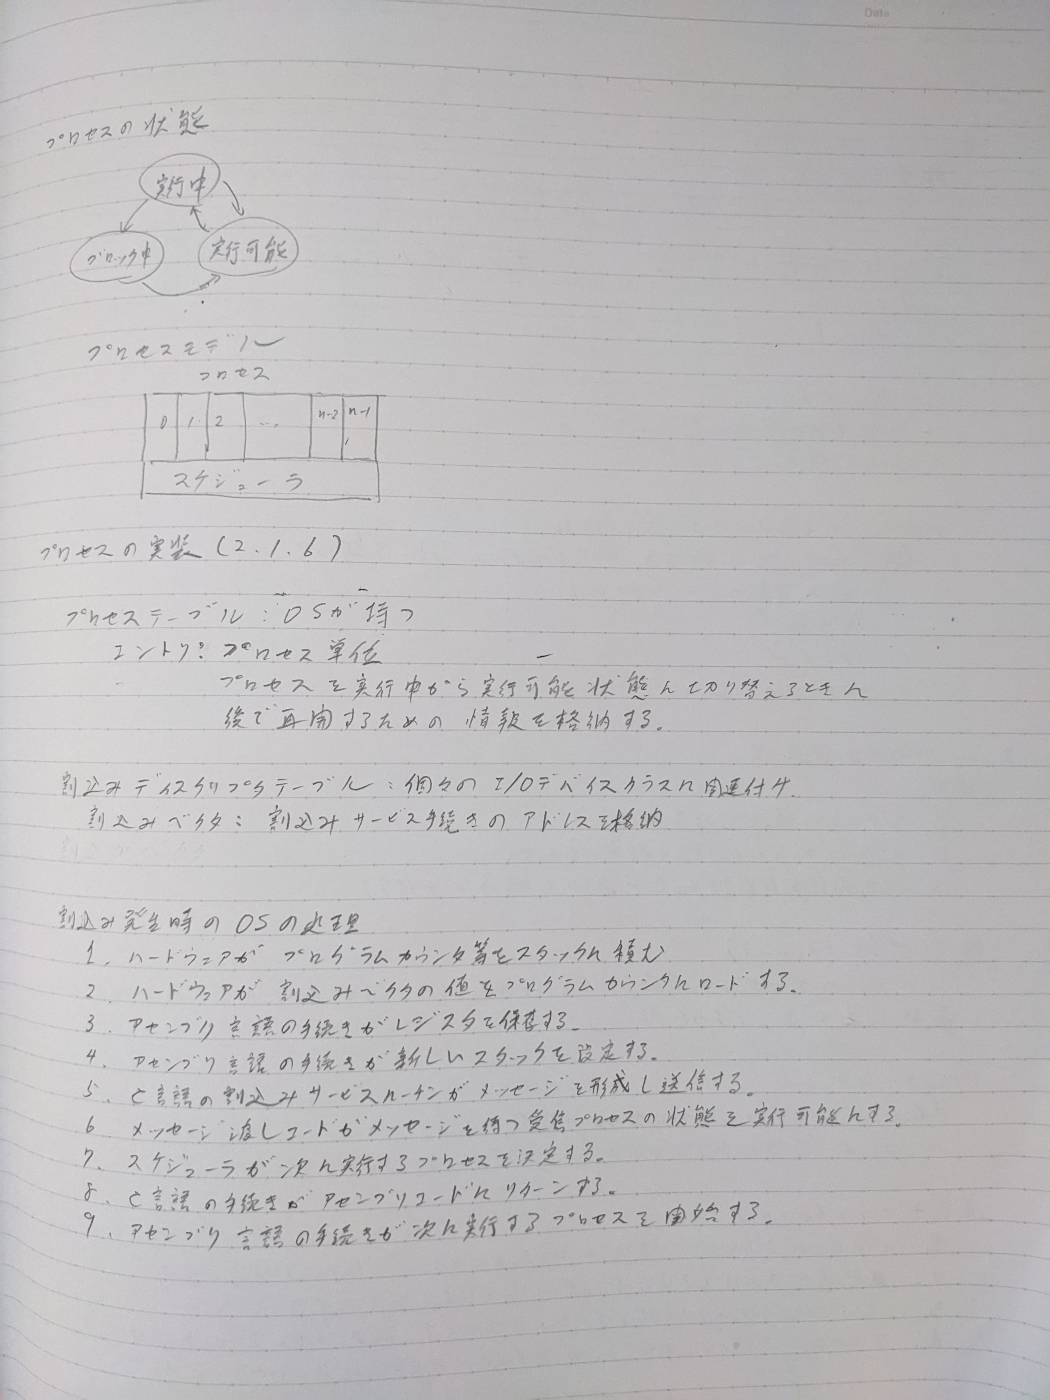 Date
プロセスの状態
実行中
ブロック中
実行可能
プロセスモデル
プロセス
0 1 2 ... n-2 n-1
スケジューラ
プロセスの実装 (2.1.6)
プロセステーブル：OSが持つ
エントリ：プロセス単位
プロセスを実行中から実行可能状態に切り替えるときに
後で再開するための情報を格納する。
割込みディスクリプタテーブル：個々のI/Oデバイスクラスに関連付け
割込みベクタ：割込みサービス手続きのアドレスを格納
割込み発生時のOSの処理
1. ハードウェアがプログラムカウンタ等をスタックに積む
2. ハードウェアが割込みベクタの値をプログラムカウンタにロードする。
3. アセンブリ言語の手続きがレジスタを保存する。
4. アセンブリ言語の手続きが新しいスタックを設定する。
5. C言語の割込みサービスルーチンがメッセージを形成し送信する。
6 メッセージ渡しコードがメッセージを待つ受信プロセスの状態を実行可能にする。
7. スケジューラが次に実行するプロセスを決定する。
8. C言語の手続きがアセンブリコードにリターンする。
9. アセンブリ言語の手続きが次に実行するプロセスを開始する。